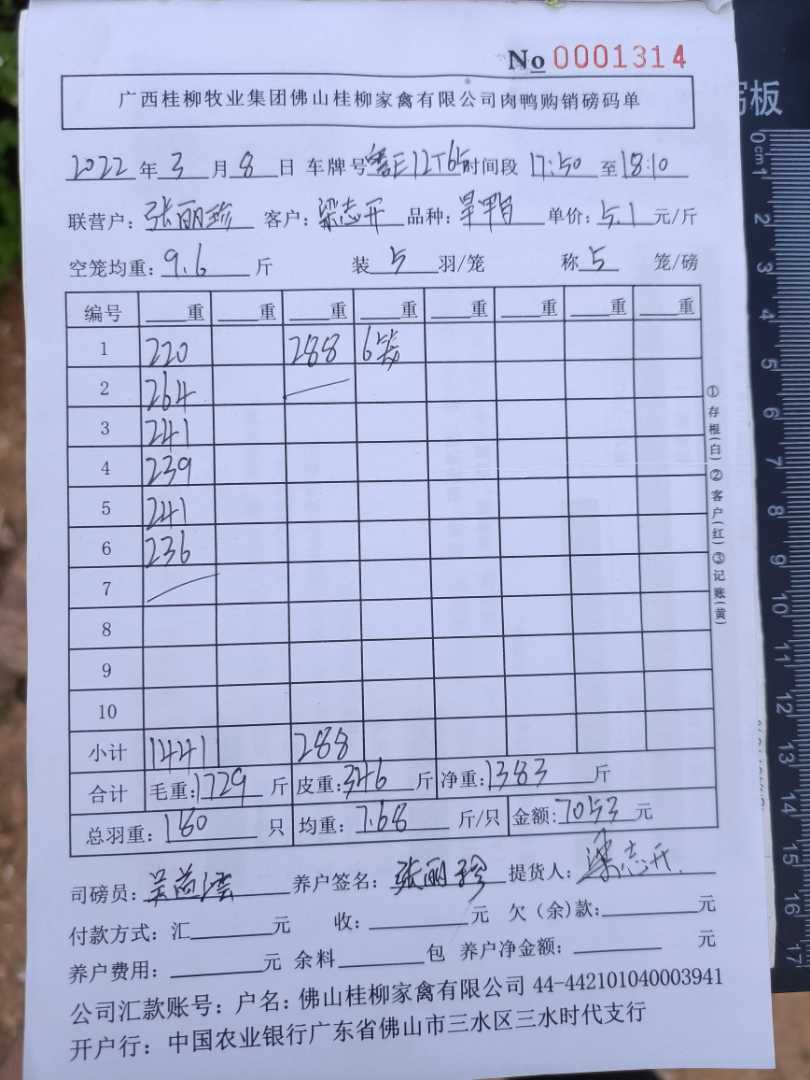 No 0001314
广西桂柳牧业集团佛山桂柳家禽有限公司肉鸭购销磅码单
2022年3月8日 车牌号粤E12T65时间段17:50至18:10
联营户:张丽珍 客户:梁志开 品种: 单价:5.1元/斤
空笼均重:9.6斤 装5羽/笼 称5笼/磅
编号 重 重 重 重 重 重 重 重
1 220 288 6笼
2 264
3 241
4 239
5 241
6 236
7
8
9
10
小计 1441 288
合计 毛重:1729斤 皮重:346斤 净重:1383斤
总羽重:180只 均重:7.68斤/只 金额:7053元
司磅员: 养户签名:张丽珍 提货人:梁志开
付款方式:汇 元 收: 元 欠(余)款: 元
养户费用: 元 余料 包 养户净金额: 元
公司汇款账号:户名:佛山桂柳家禽有限公司 44-442101040003941
开户行:中国农业银行广东省佛山市三水区三水时代支行
①存根(白)②客户(红)③记账(黄)
板
0cm 1 2 3 4 5 6 7 8 9 10 11 12 13 14 15 16 17